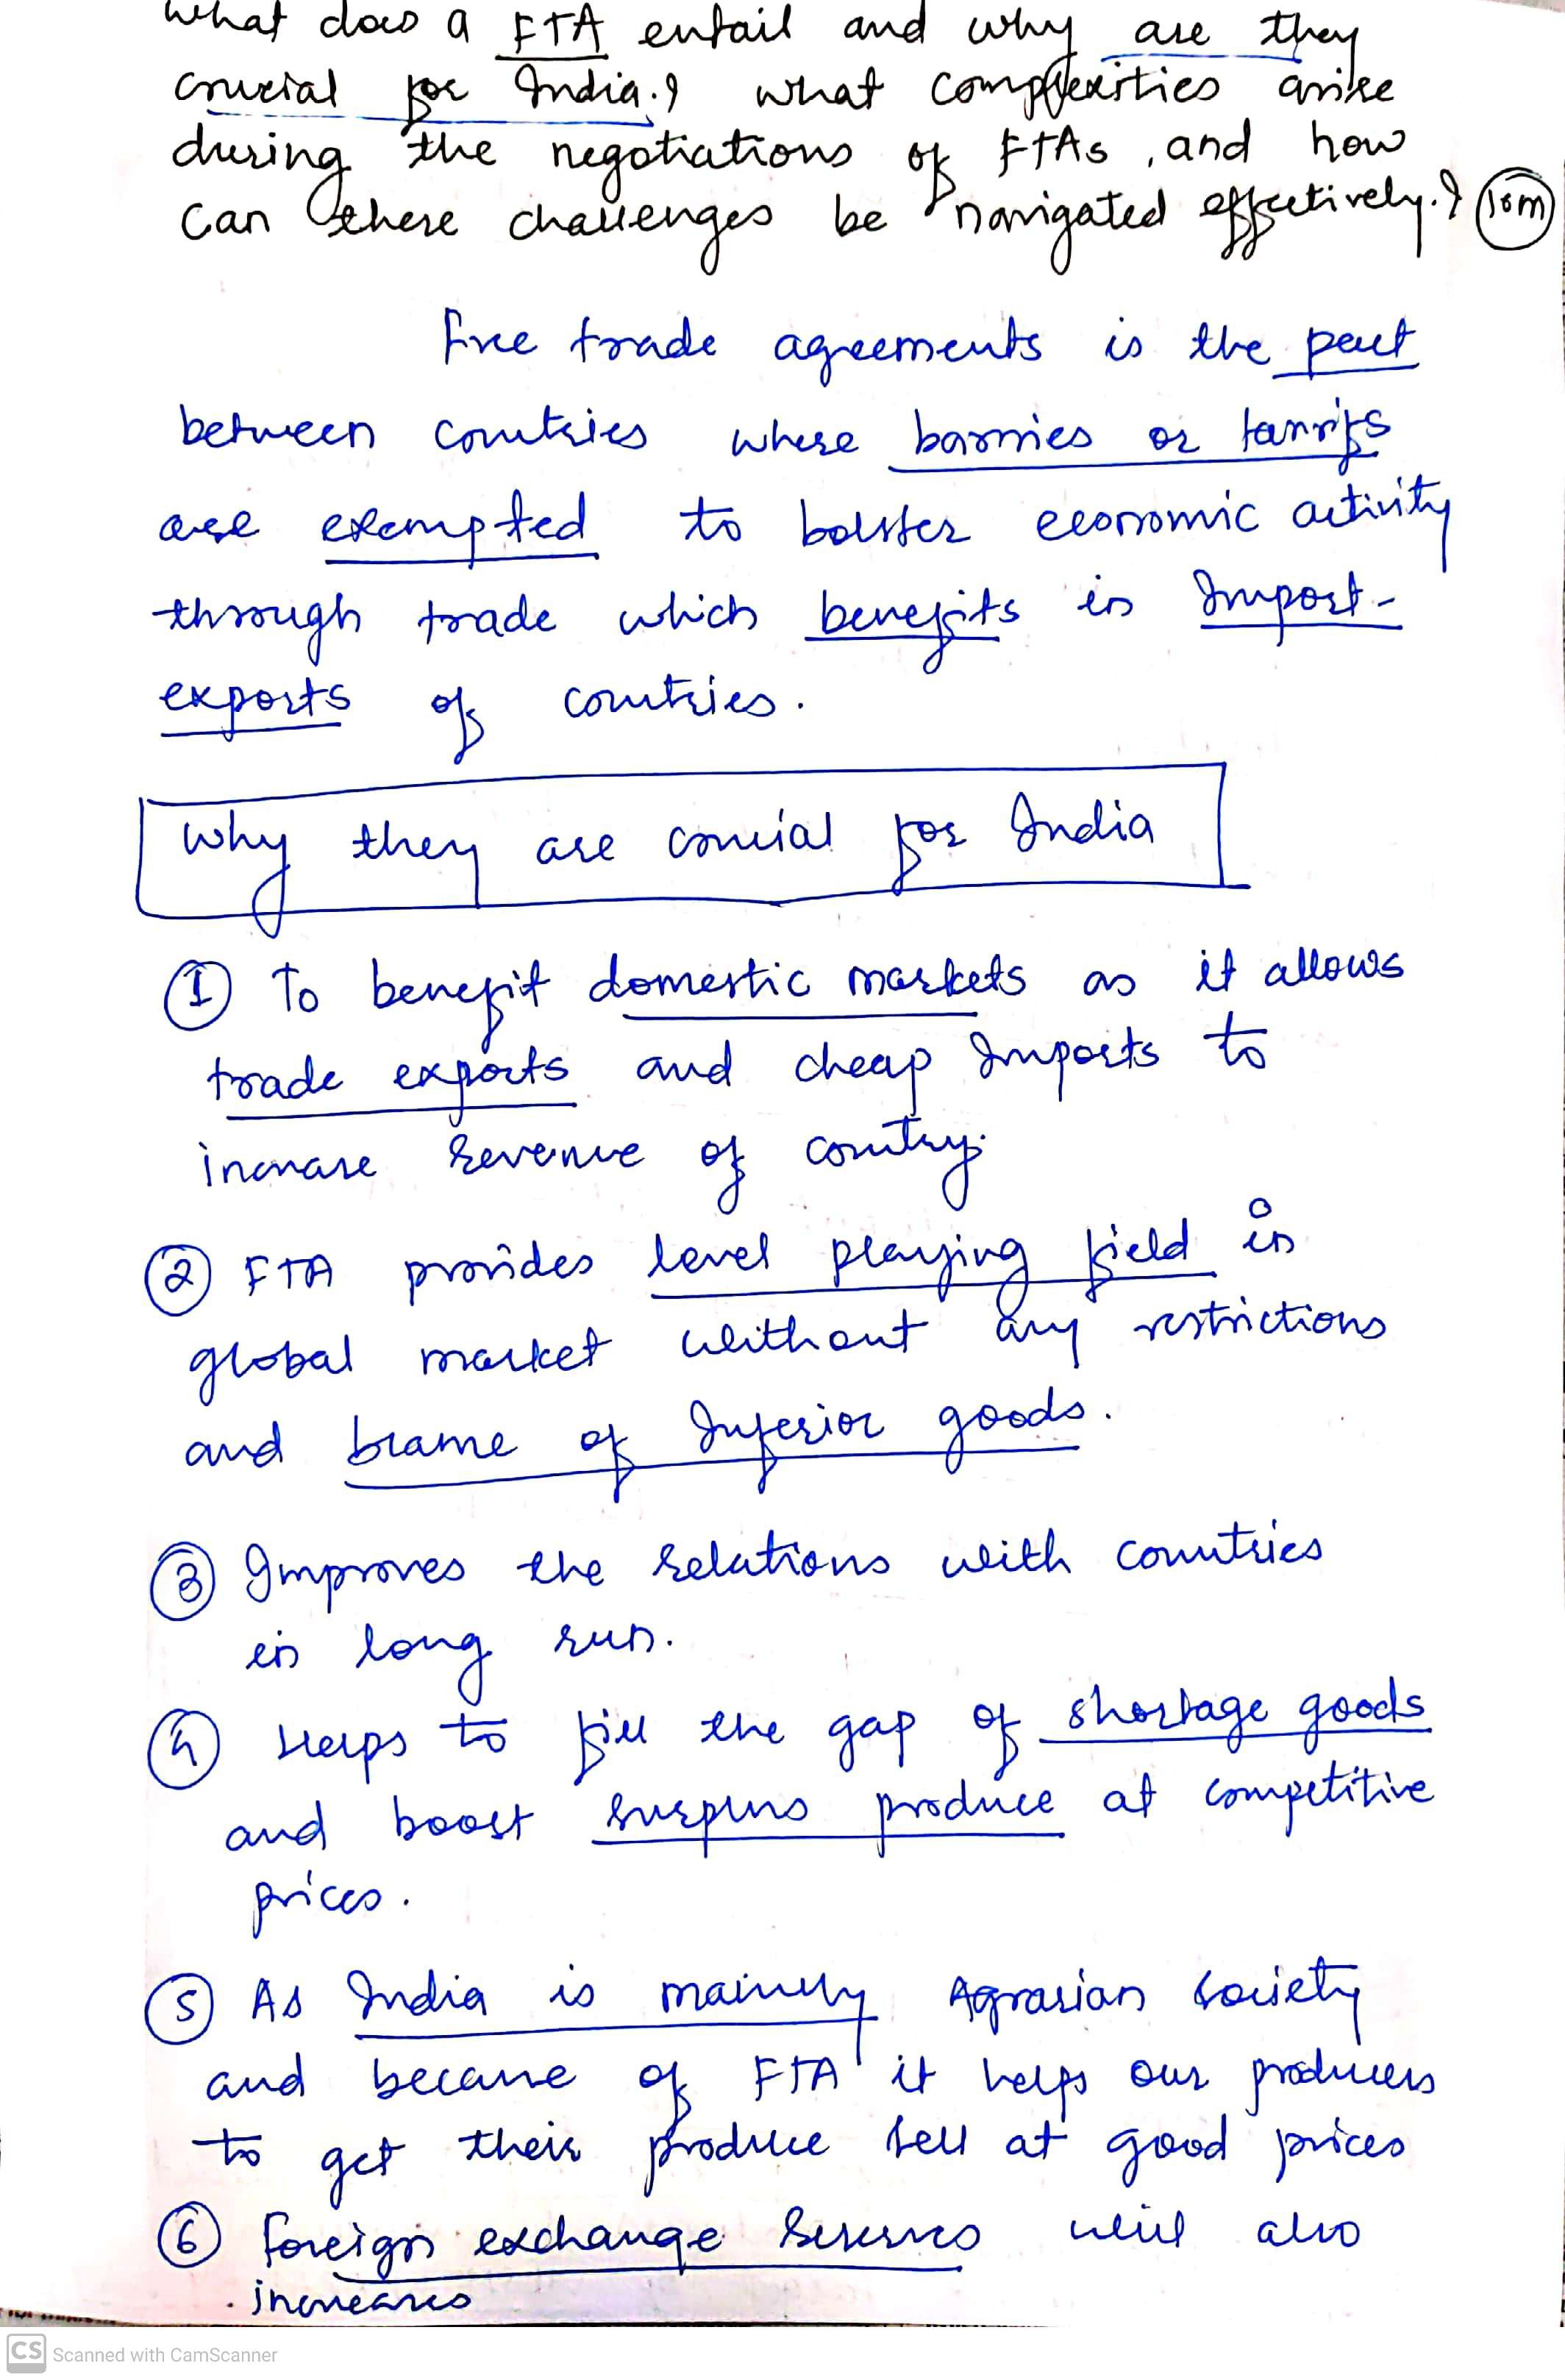 What does a FTA entail and why are they
crucial for India.? what complexities arise
during the negotiations of FTAs, and how
can these challenges be navigated effectively.? 10m
Free trade agreements is the pact
between countries where barries or tarrifs
are exempted to bolster economic activity
through trade which benefits in Import-
exports of countries.
Why they are crucial for India
① To benefit domestic markets as it allows
trade exports and cheap Imports to
increase revenue of country.
② FTA provides level playing field in
global market without any restrictions
and blame of Inferior goods.
③ Improves the relations with countries
in long run.
④ Helps to fill the gap of shortage goods
and boost surplus produce at competitive
prices.
⑤ As India is mainly Agrarian society
and because of FTA it helps our producers
to get their produce sell at good prices
⑥ Foreign exchange reserves will also
increases
CS Scanned with CamScanner